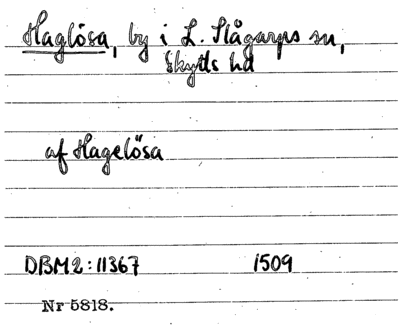 Haglösa, by i L. Slågarps sn,
Skytts hd
af Hagelősa
DBM2:11367 1509
Nr 5818.